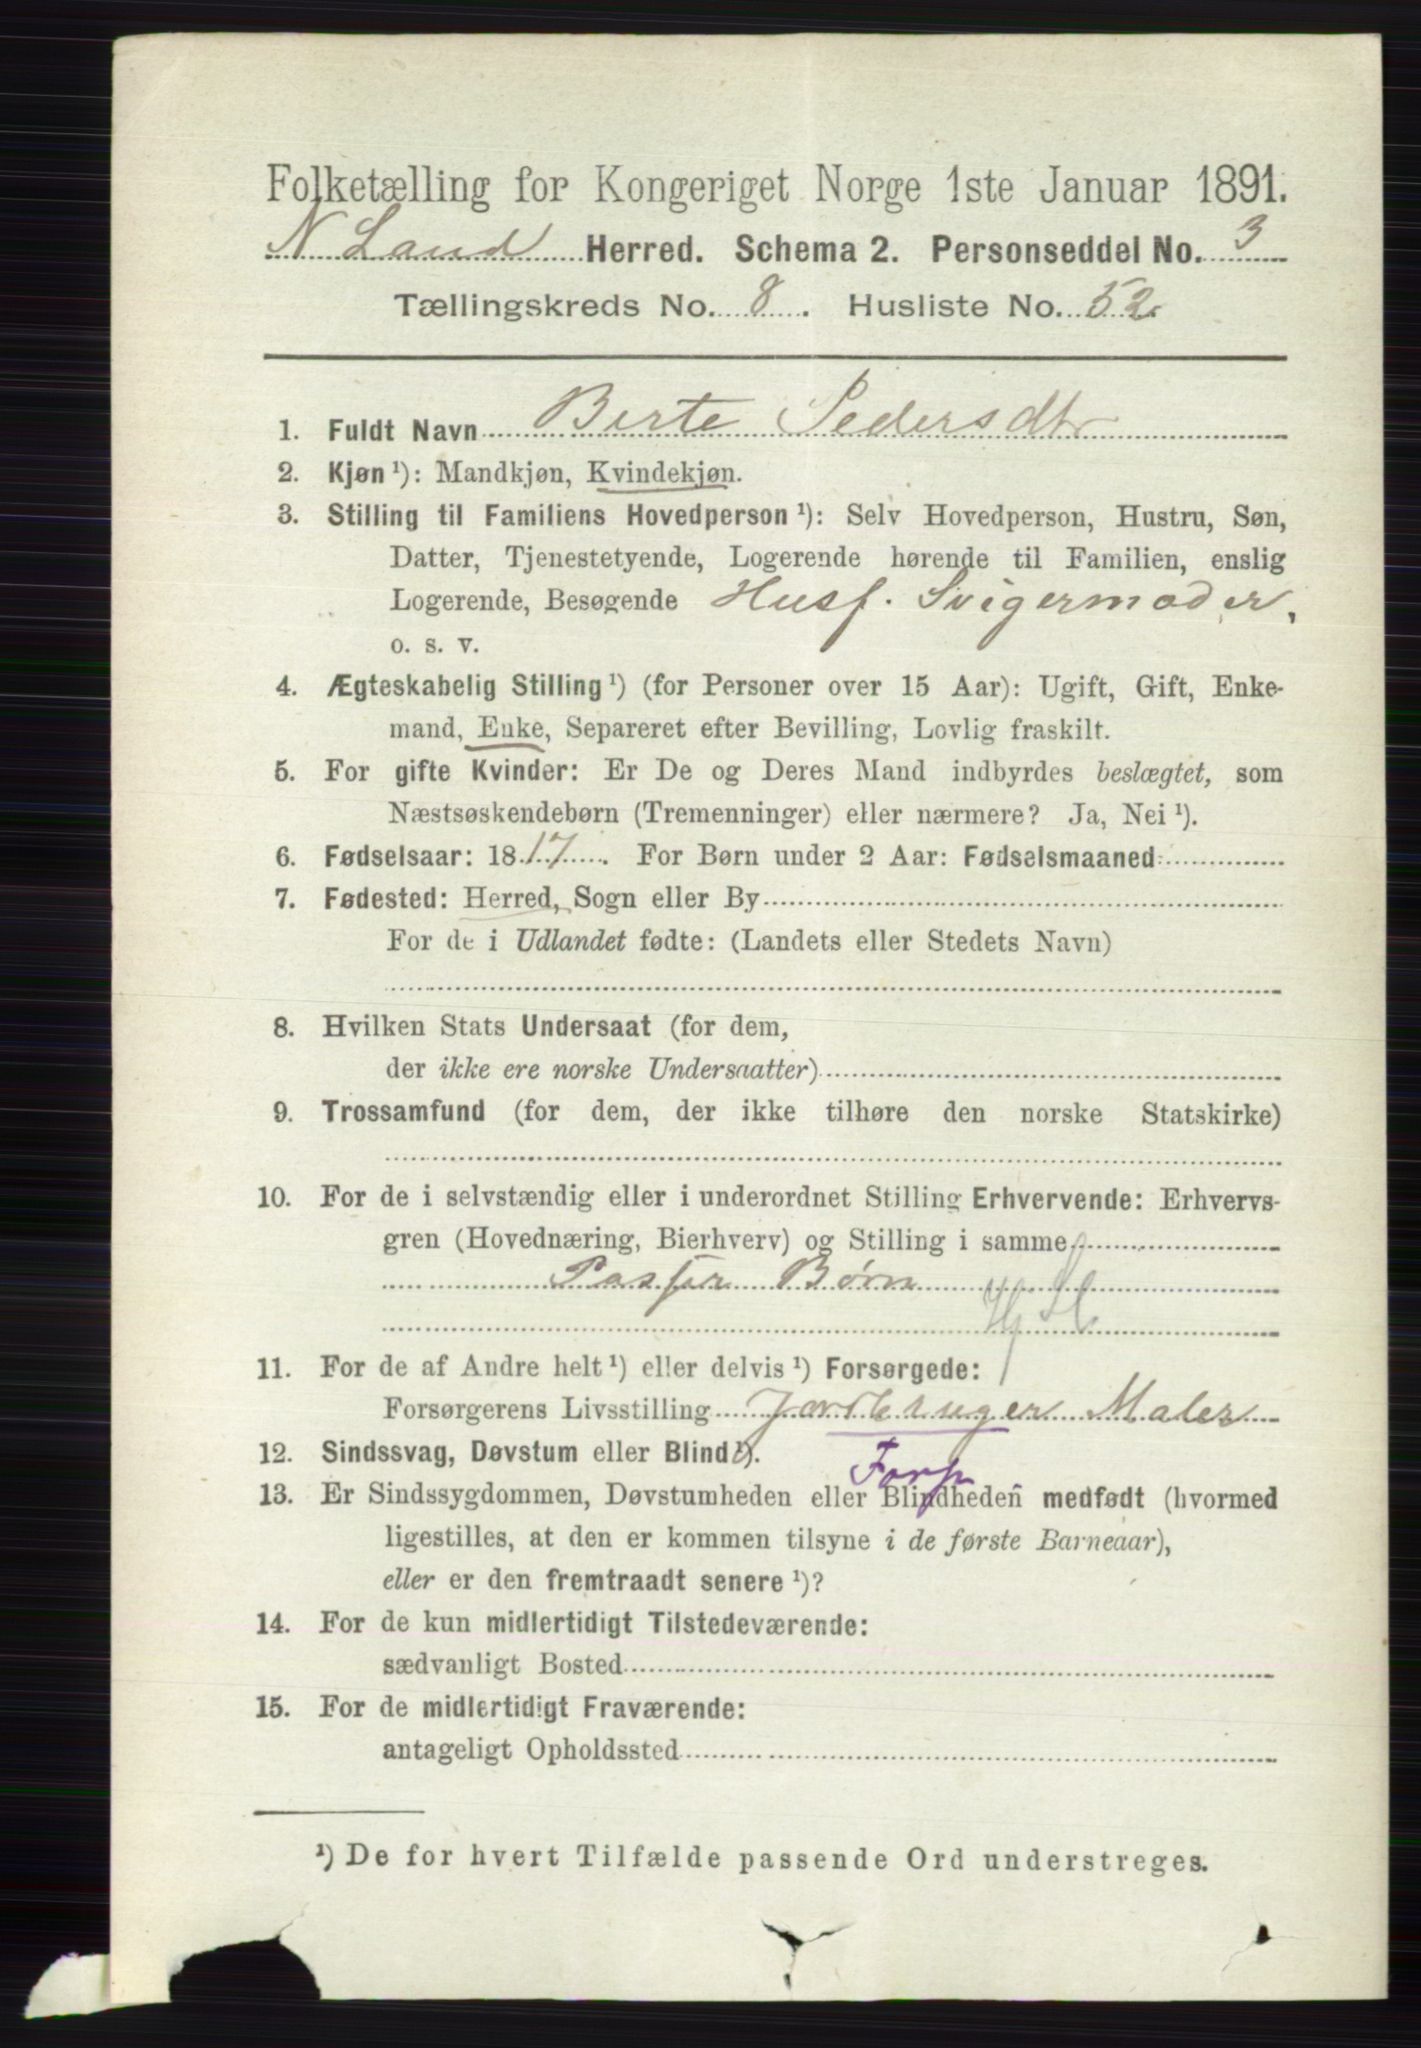 Folketælling for Kongeriget Norge 1ste Januar 1891.
N Land Herred. Schema 2. Personseddel No. 3
Tællingskreds No. 8. Husliste No. 52.
1. Fuldt Navn Birte Pedersdtr
2. Kjøn ¹): Mandkjøn, Kvindekjøn.
3. Stilling til Familiens Hovedperson ¹): Selv Hovedperson, Hustru, Søn,
Datter, Tjenestetyende, Logerende hørende til Familien, enslig
Logerende, Besøgende Husf. Svigermoder,
o. s. v.
4. Ægteskabelig Stilling ¹) (for Personer over 15 Aar): Ugift, Gift, Enke-
mand, Enke, Separeret efter Bevilling, Lovlig fraskilt.
5. For gifte Kvinder: Er De og Deres Mand indbyrdes beslægtet, som
Næstsøskendebørn (Tremenninger) eller nærmere? Ja, Nei ¹).
6. Fødselsaar: 1817. For Børn under 2 Aar: Fødselsmaaned
7. Fødested: Herred, Sogn eller By
For de i Udlandet fødte: (Landets eller Stedets Navn)
8. Hvilken Stats Undersaat (for dem,
der ikke ere norske Undersaatter)
9. Trossamfund (for dem, der ikke tilhøre den norske Statskirke)
10. For de i selvstændig eller i underordnet Stilling Erhvervende: Erhvervs-
gren (Hovednæring, Bierhverv) og Stilling i samme
Passer Børn
11. For de af Andre helt ¹) eller delvis ¹) Forsørgede:
Forsørgerens Livsstilling Jordbruger Maler
12. Sindssvag, Døvstum eller Blind ¹).
Forsp
13. Er Sindssygdommen, Døvstumheden eller Blindheden medfødt (hvormed
ligestilles, at den er kommen tilsyne i de første Barneaar),
eller er den fremtraadt senere ¹)?
14. For de kun midlertidigt Tilstedeværende:
sædvanligt Bosted
15. For de midlertidigt Fraværende:
antageligt Opholdssted
¹) De for hvert Tilfælde passende Ord understreges.